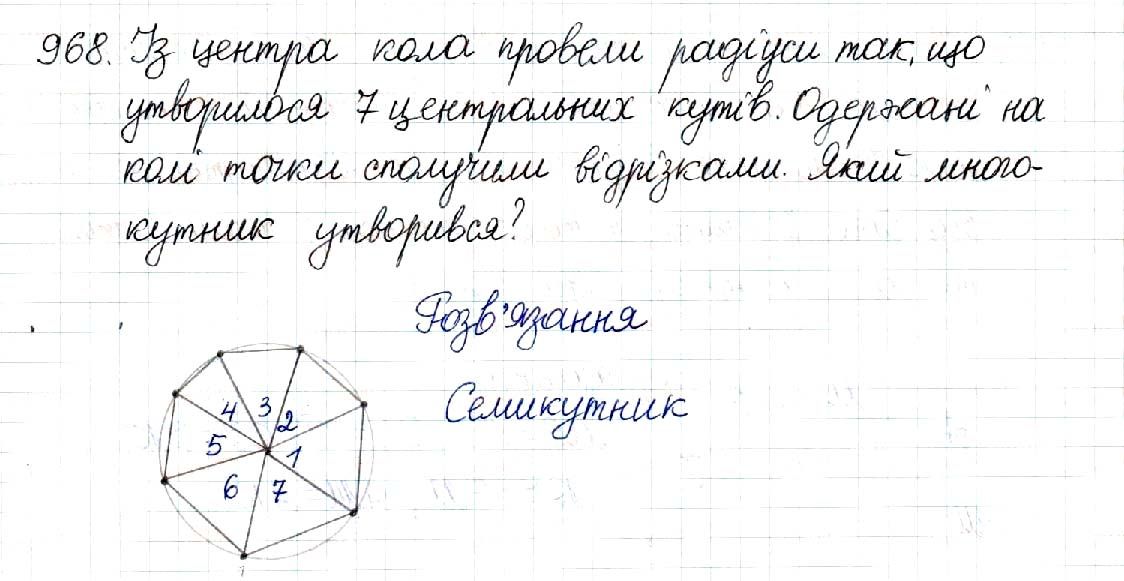 968. Із центра кола провели радіуси так, що
утворилося 7 центральних кутів. Одержані на
колі точки сполучили відрізками. Який много-
кутник утворився?
Розв'язання
Семикутник
4 3 2
5 1
6 7